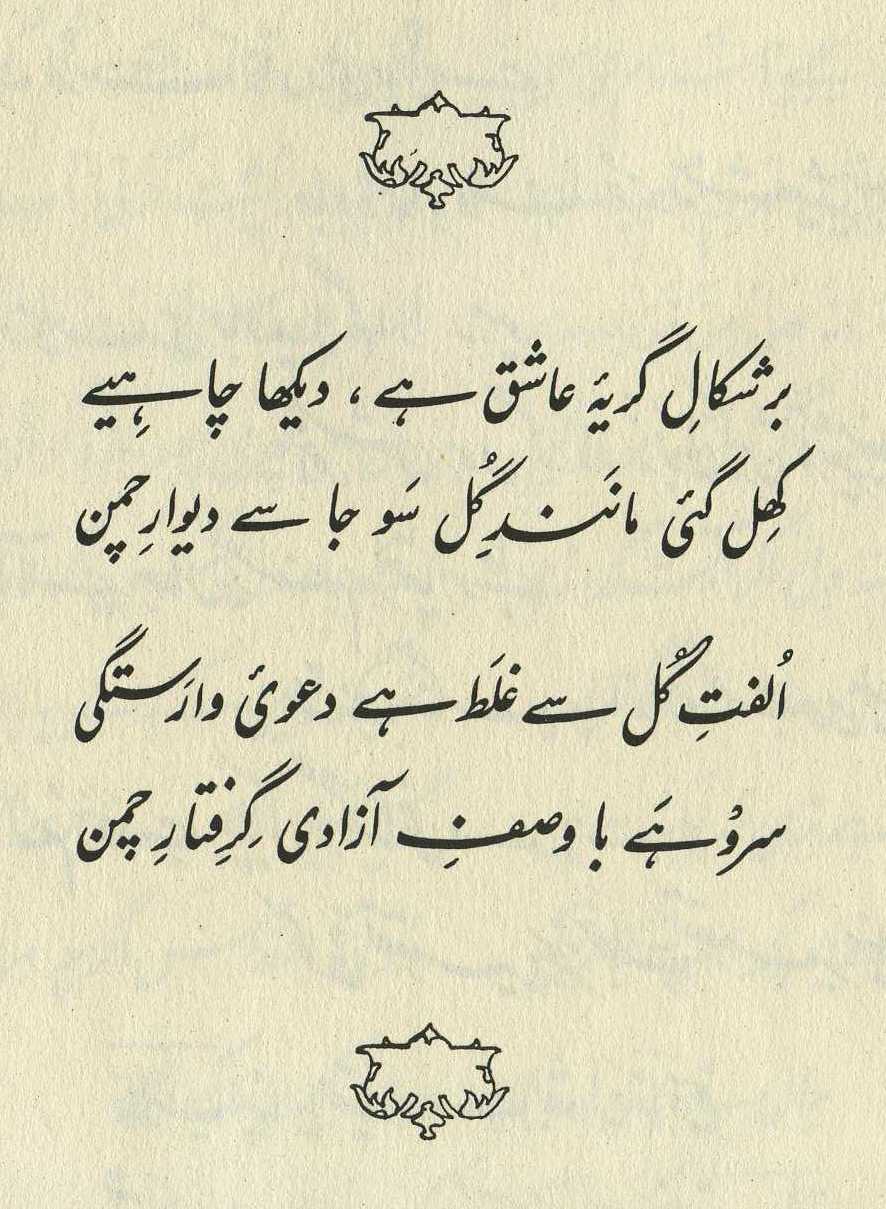 برشکالِ گریۂ عاشق ہے ، دیکھا چاہیے
کھِل گئی مانَندِ گُل سَو جا سے دیوارِ چمن
اُلفتِ گُل سے غلَط ہے دعویٔ وارَستگی
سروْ ہَے با وصفِ آزادی گِرِفتارِ چمن